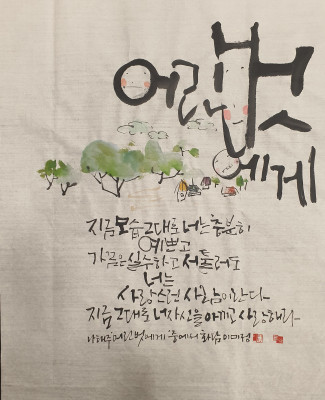 어린 벗
에게
지금 모습 그대로 너는 충분히
예쁘고
가끔은 실수하고 서툴러도
너는
사랑스런 사람이란다
지금 그대로 너 자신을 아끼고 사랑해라
나태주 어린 벗에게 중에서 이미정